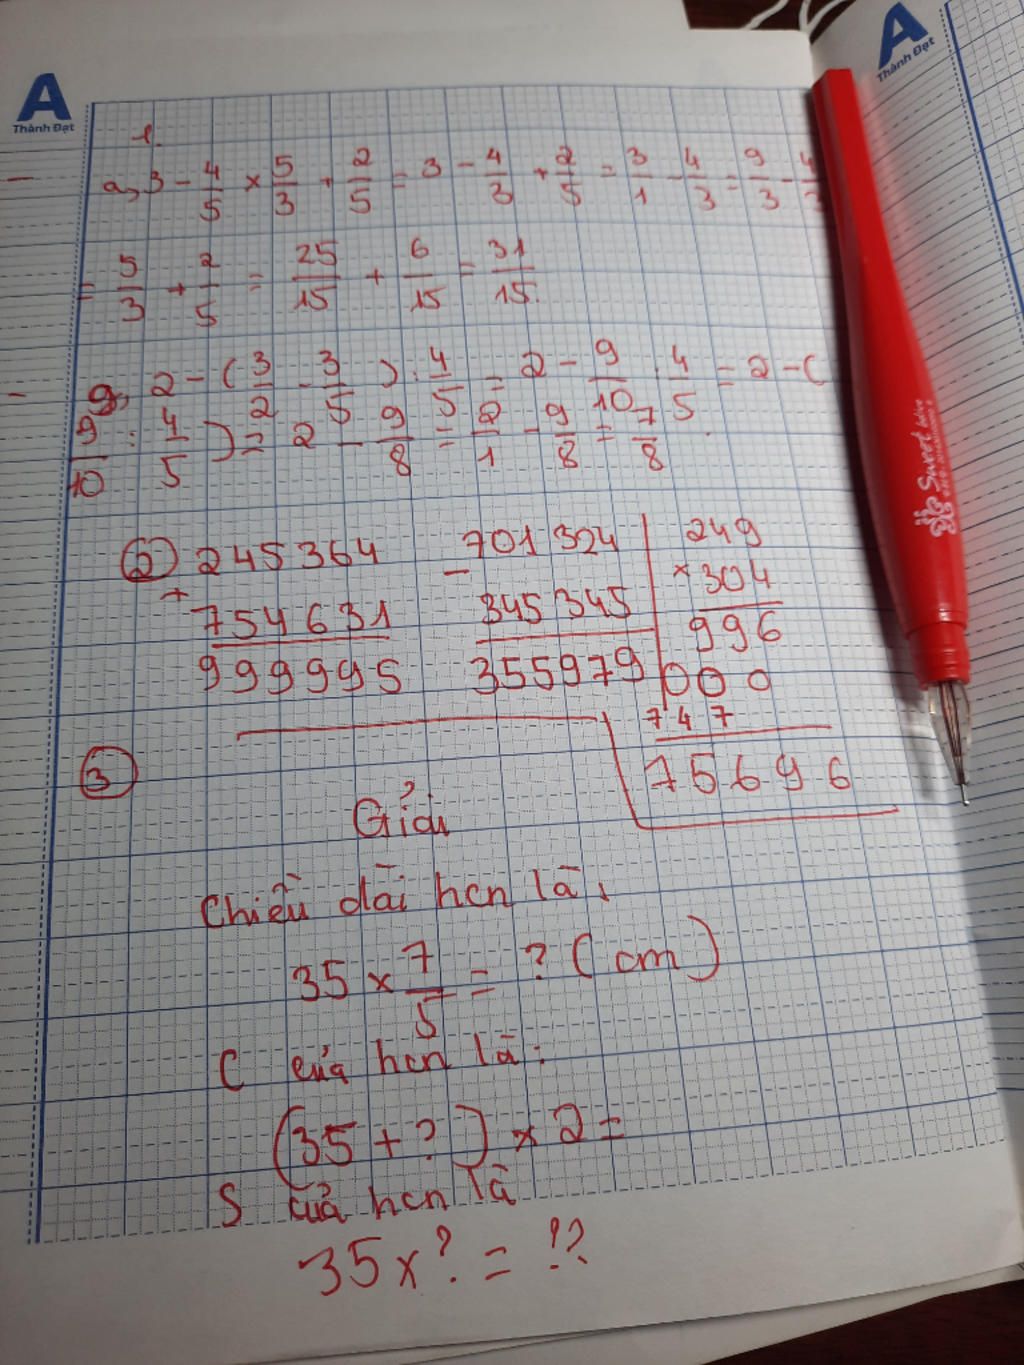 A
Thành Đạt
A
Thành Đạt
1.
a, 3 - 4/5 × 5/3 + 2/5 = 3 - 4/3 + 2/5 = 3/1 - 4/3 = 9/3 - 4/
= 5/3 + 2/5 = 25/15 + 6/15 = 31/15.
g, 2 - ( 3/2 . 3/5 ) : 4/5 = 2 - 9/10 . 4/5 = 2 - (
9/10 : 4/5 ) = 2 - 9/8 = 2/1 - 9/8 = 7/8 .
2 245364 - 701324 249
+ 754631 345345 × 304
999995 355979 996
000
747
75696
3
Giải
Chiều dài hcn là:
35 × 7/5 = ? ( cm )
C của hcn là:
(35 + ?) × 2 =
S của hcn là
35 x ? = !?
Sweet